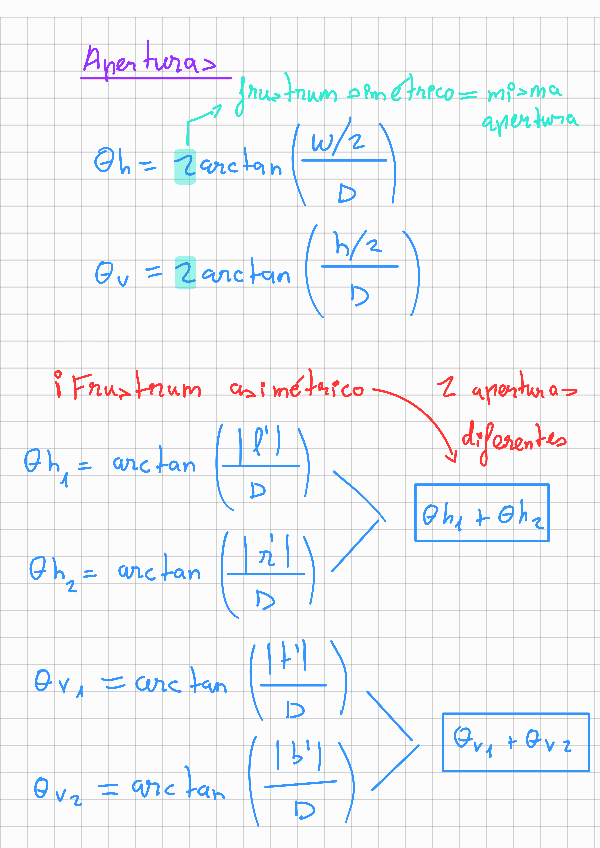 Aperturas
frustrum simétrico = misma
apertura
θh = 2 arctan ( w/2 / D )
θv = 2 arctan ( h/2 / D )
¡ Frustrum asimétrico 2 aperturas
diferentes
θh₁ = arctan ( |l'| / D )
θh₁ + θh₂
θh₂ = arctan ( |r'| / D )
θv₁ = arctan ( |t'| / D )
θv₁ + θv₂
θv₂ = arctan ( |b'| / D )